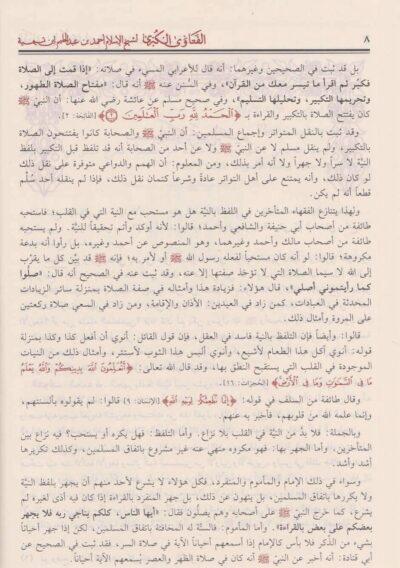 ٨ الفتاوى الكبرى لشيخ الإسلام أحمد بن عبد الحليم ابن تيمية
بل قد ثبت في الصحيحين وغيرهما: أنه قال للأعرابي المسيء في صلاته: «إذا قمت إلى الصلاة
فكبّر ثم اقرأ ما تيسر معك من القرآن»، وفي السُّنن عنه ﷺ أنه قال: «مفتاح الصلاة الطهور،
وتحريمها التكبير، وتحليلها التسليم»، وفي صحيح مسلم عن عائشة رضي الله عنها: أن النبيّ ﷺ
كان يفتتح الصلاة بالتكبير والقراءة بـ ﴿الْحَمْدُ لِلَّهِ رَبِّ الْعَالَمِينَ ۝﴾ [الفاتحة: ٢].
وقد ثبت بالنقل المتواتر وإجماع المسلمين: أن النبيّ ﷺ والصحابة كانوا يفتتحون الصلاة
بالتكبير، ولم ينقل مسلم لا عن النبيّ ﷺ ولا عن أحد من الصحابة أنه قد تلفظ قبل التكبير بلفظ
النيّة لا سراً ولا جهراً ولا أنه أمر بذلك، ومن المعلوم: أن الهمم والدواعي متوفرة على نقل ذلك
لو كان ذلك، وأنه يمتنع على أهل التواتر عادةً وشرعاً كتمان نقل ذلك، فإذا لم ينقله أحد عُلم
قطعاً أنه لم يكن.
ولهذا يتنازع الفقهاء المتأخرين في اللفظ بالنيّة هل هو مستحب مع النية التي في القلب؛ فاستحبه
طائفة من أصحاب أبي حنيفة والشافعي وأحمد؛ قالوا: لأنه أوكد وأتم تحقيقاً للنيّة. ولم يستحبه
طائفة من أصحاب مالك وأحمد وغيرهما، وهو المنصوص عن أحمد وغيره، بل رأوا أنه بدعة
مكروهة؛ قالوا: لو أنه كان مستحباً لفعله رسول الله ﷺ أو لأمر به؛ فإنه ﷺ قد بيّن كل ما يقرّب
إلى الله لا سيما الصلاة التي لا تؤخذ صفتها إلا عنه، وقد ثبت عنه في الصحيح أنه قال: «صلّوا
كما رأيتموني أصلي»، قال هؤلاء: فزيادة هذا وأمثاله في صفة الصلاة بمنزلة سائر الزيادات
المحدثة في العبادات، كمن زاد في العيدين: الأذان والإقامة، ومن زاد في السعي صلاة ركعتين
على المروة وأمثال ذلك.
قالوا: وأيضاً فإن التلفظ بالنية فاسد في العقل، فإن قول القائل: أنوي أن أفعل كذا وكذا بمنزلة
قوله: أنوي آكل هذا الطعام لأشبع، وأنوي ألبس هذا الثوب لأستتر، وأمثال ذلك من النيات
الموجودة في القلب التي يستقبح النطق بها، وقد قال الله تعالى: ﴿أَتُعَلِّمُونَ اللَّهَ بِدِينِكُمْ وَاللَّهُ يَعْلَمُ
مَا فِي السَّمَاوَاتِ وَمَا فِي الْأَرْضِ﴾ [الحُجرات: ١٦].
وقال طائفة من السلف في قوله: ﴿إِنَّمَا نُطْعِمُكُمْ لِوَجْهِ اللَّهِ﴾ [الإنسان: ٩] قالوا: لم يقولوه بألسنتهم،
وإنما علمه الله من قلوبهم، فأخبر به عنهم.
وبالجملة: فلا بدّ من النيّة في القلب بلا نزاع. وأما التلفظ: فهل يكره أو يستحب؟ فيه نزاع بين
المتأخرين. وأما الجهر بها: فهو مكروه منهي عنه غير مشروع باتفاق المسلمين، وكذلك تكريرها
أشد وأشد.
وسواء في ذلك الإمام والمأموم والمنفرد، فكل هؤلاء لا يشرع لأحد منهم أن يجهر بلفظ النيّة
ولا يكررها باتفاق المسلمين، بل ينهون عن ذلك، بل جهر المنفرد بالقراءة إذا كان فيه أذى لغيره لم
يشرع، كما خرج النبيّ ﷺ على أصحابه وهم يصلّون فقال: «أيها الناس، كلكم يناجي ربه فلا يجهر
بعضكم على بعض بالقراءة». وأما المأموم: فالسنّة له المخافتة باتفاق المسلمين، لكن إذا جهر أحياناً
بشيء من الذّكر فلا بأس كالإمام إذا أسمعهم أحياناً الآية في صلاة السر، فقد ثبت في الصحيح عن
أبي قتادة: أنه أخبر عن النبيّ ﷺ أنه كان في صلاة الظهر والعصر يُسمعهم الآية أحياناً.